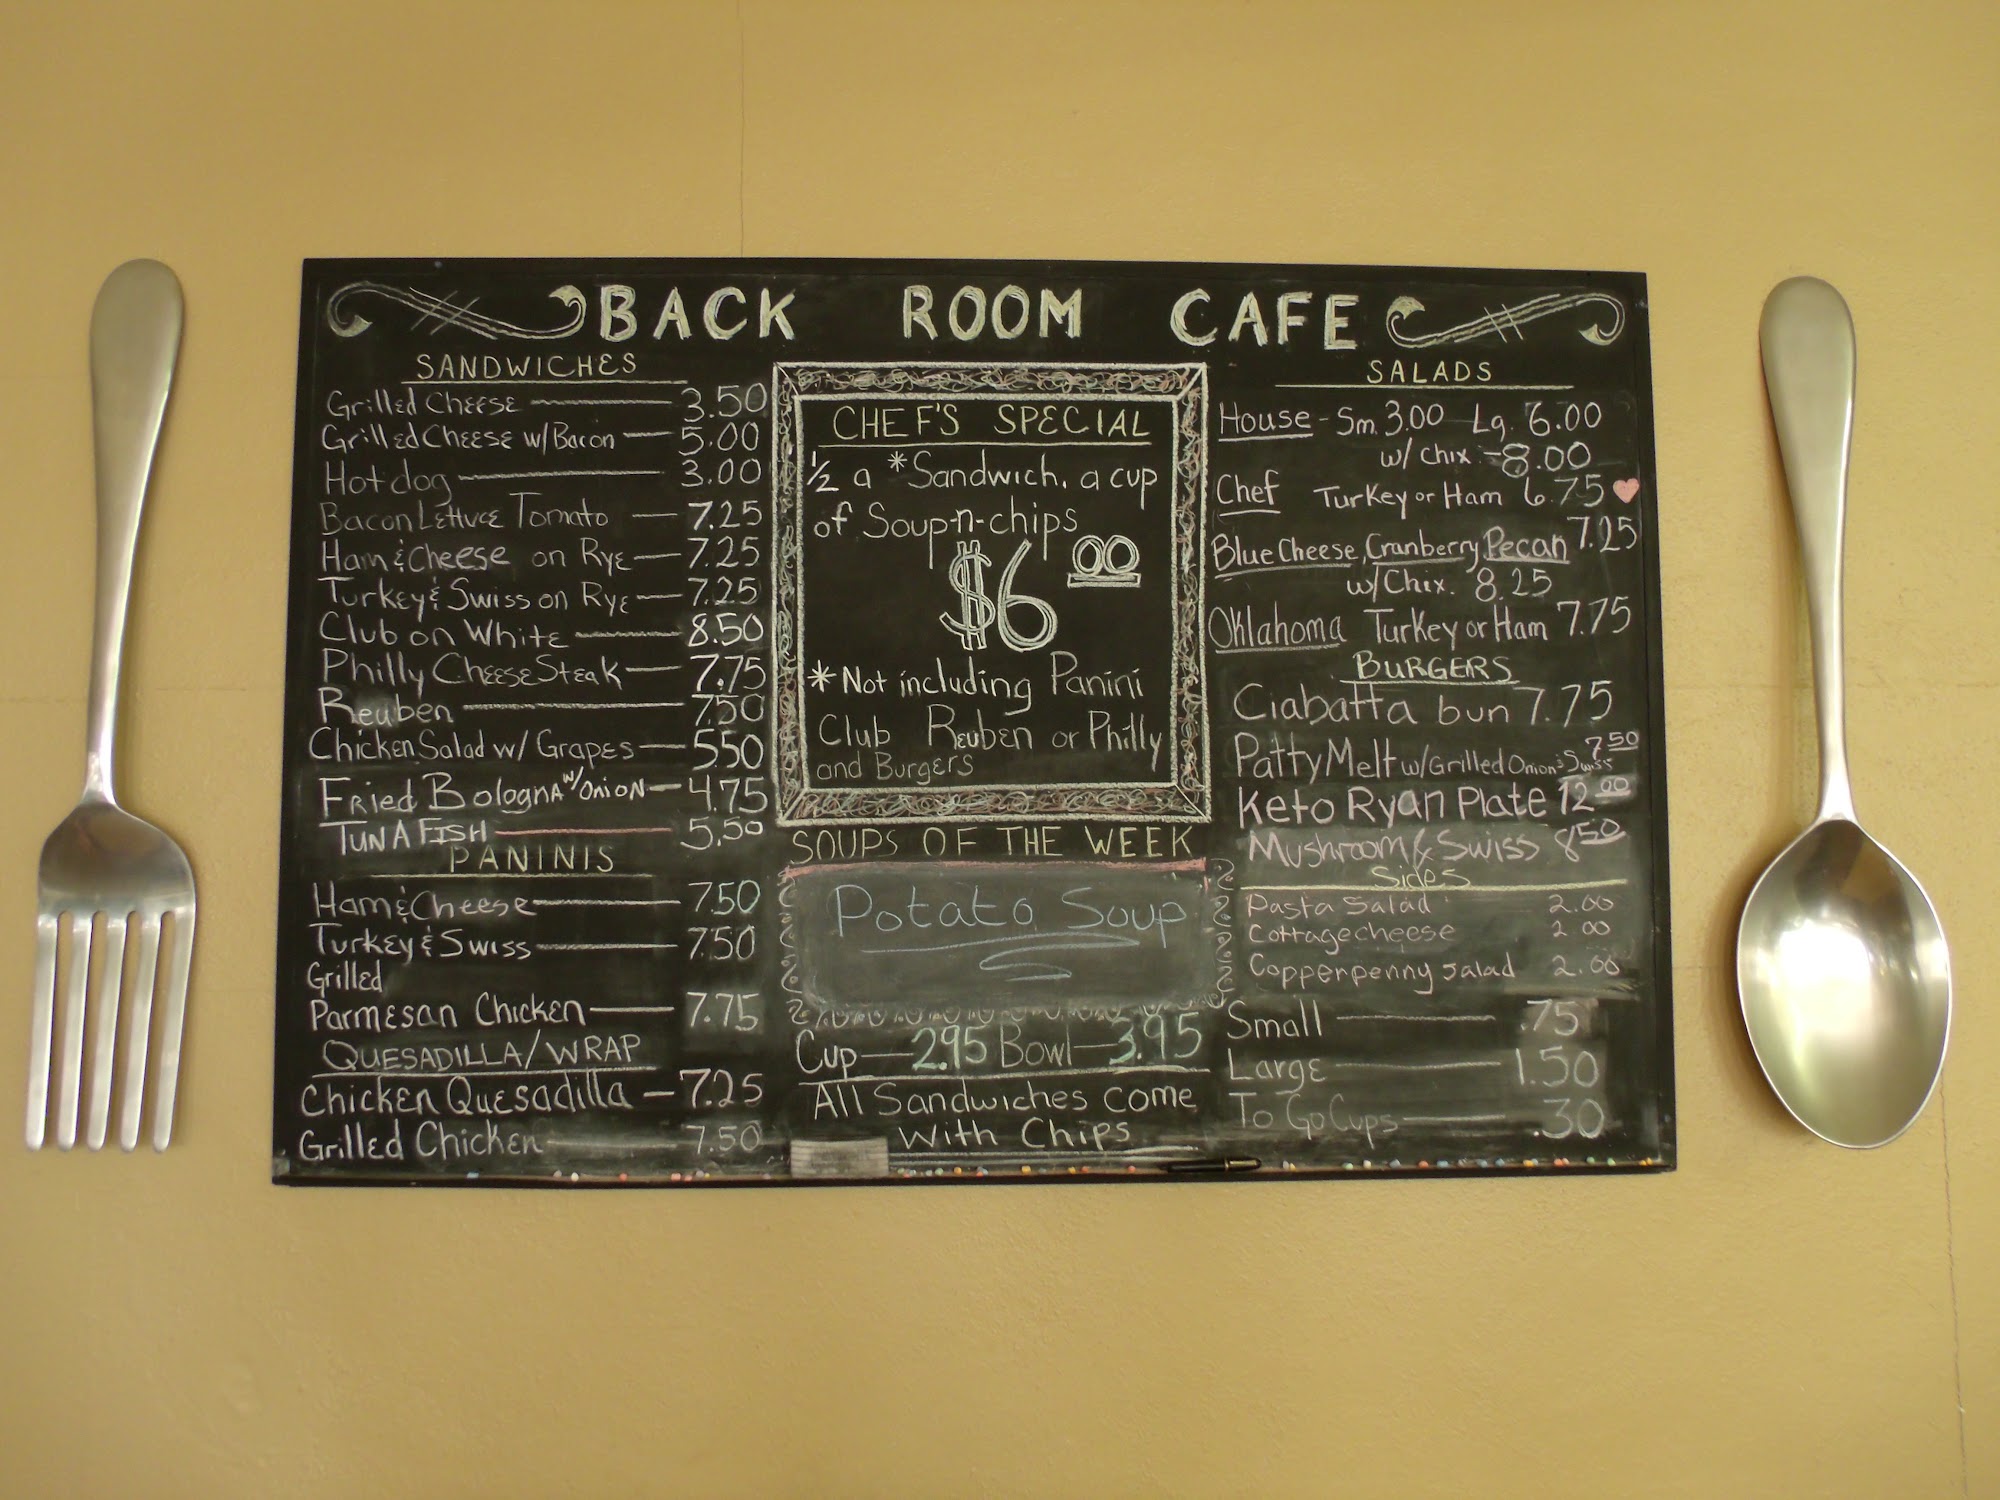 BACK ROOM CAFE
SANDWICHES
Grilled Cheese 3.50
Grilled Cheese w/Bacon 5.00
Hotdog 3.00
Bacon Lettuce Tomato 7.25
Ham & Cheese on Rye 7.25
Turkey & Swiss on Rye 7.25
Club on White 8.50
Philly Cheese Steak 7.75
Reuben 7.50
Chicken Salad w/ Grapes 5.50
Fried Bologna w/Onion 4.75
TUNA FISH 5.50
PANINIS
Ham & Cheese 7.50
Turkey & Swiss 7.50
Grilled
Parmesan Chicken 7.75
QUESADILLA/WRAP
Chicken Quesadilla 7.25
Grilled Chicken 7.50
CHEF'S SPECIAL
1/2 a *Sandwich, a cup
of Soup-n-chips
$6.00
*Not including Panini
Club Reuben or Philly
and Burgers
SOUPS OF THE WEEK
Potato Soup
Cup 2.95 Bowl 3.95
All Sandwiches come
with Chips
SALADS
House - Sm. 3.00 Lg. 6.00
w/ chix - 8.00
Chef Turkey or Ham 6.75
Blue Cheese, Cranberry, Pecan 7.25
w/Chix. 8.25
Oklahoma Turkey or Ham 7.75
BURGERS
Ciabatta bun 7.75
Patty Melt w/Grilled Onion & Swiss 7.50
Keto Ryan Plate 12.00
Mushroom & Swiss 8.50
Sides
Pasta Salad 2.00
Cottagecheese 2.00
Copperpenny salad 2.00
Small .75
Large 1.50
To Go Cups .30